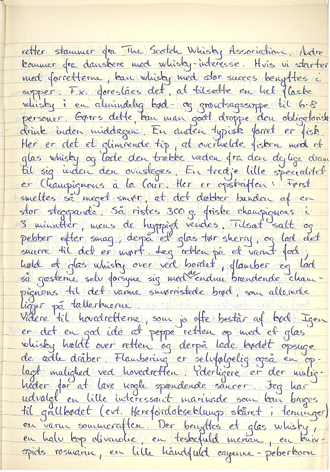 retter stammer fra The Scotch Whisky Association. Andre
kommer fra danskere med whisky-interesse. Hvis vi starter
med forretterne, kan whisky med stor succes benyttes i
supper. F.x. foreslåes det, at tilsætte en halv flaske
whisky i en almindelig kød- og grøntsagssuppe til 6-8
personer. Gøres dette, kan man godt droppe den obligatoriske
drink inden middagen. En anden typisk forret er fisk.
Her er det et glimrende tip, at overhælde fisken med et
glas whisky og lade den trække væden fra den dejlige dram
til sig inden den ovnsteges. En tredje lille specialitet
er Champignons à la Cour. Her er opskriften: Først
smeltes så meget smør, at det dækker bunden af en
stor stegepande. Så ristes 300 g. friske champignons i
3 minutter, mens de hyppigt vendes. Tilsæt salt og
peber efter smag, derpå et glas tør sherry, og lad det
snurre til det er mørt. Læg retten på et varmt fad,
hæld et glas whisky over ved bordet, flambér og lad
så gæsterne selv forsyne sig med de endnu brændende cham-
pignons til det varme smørristede brød, som allerede
ligger på tallerknerne.
Videre til hovedretterne, som jo ofte består af kød. Igen
er det en god idé at peppe retten op med et glas
whisky hældt over retten og derpå lade kødet opsuge
de ædle dråber. Flambering er selvfølgelig også en op-
lagt mulighed ved hovedretten. Yderligere er der mulig-
heder for at lave nogle spændende saucer. Jeg har
udvalgt en lille interessant marinade som kan bruges
til grillkødet (evt. Herefordoksetykkam skåret i terninger)
en varm sommeraften. Der benyttes et glas whisky,
en halv kop olivenolie, en teskefuld merian, en kniv-
spids rosmarin, en lille håndfuld cayenne-peberkorn